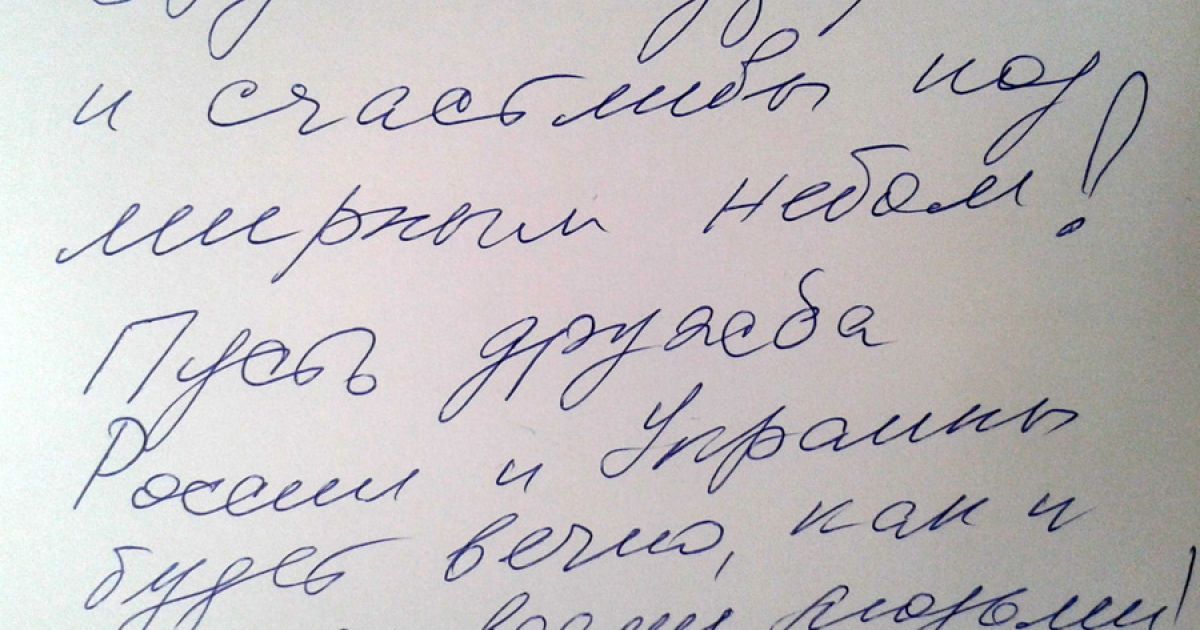 и счастливы под
мирным небом!
Пусть дружба
России и Украины
будет вечно, как и
всеми людьми!